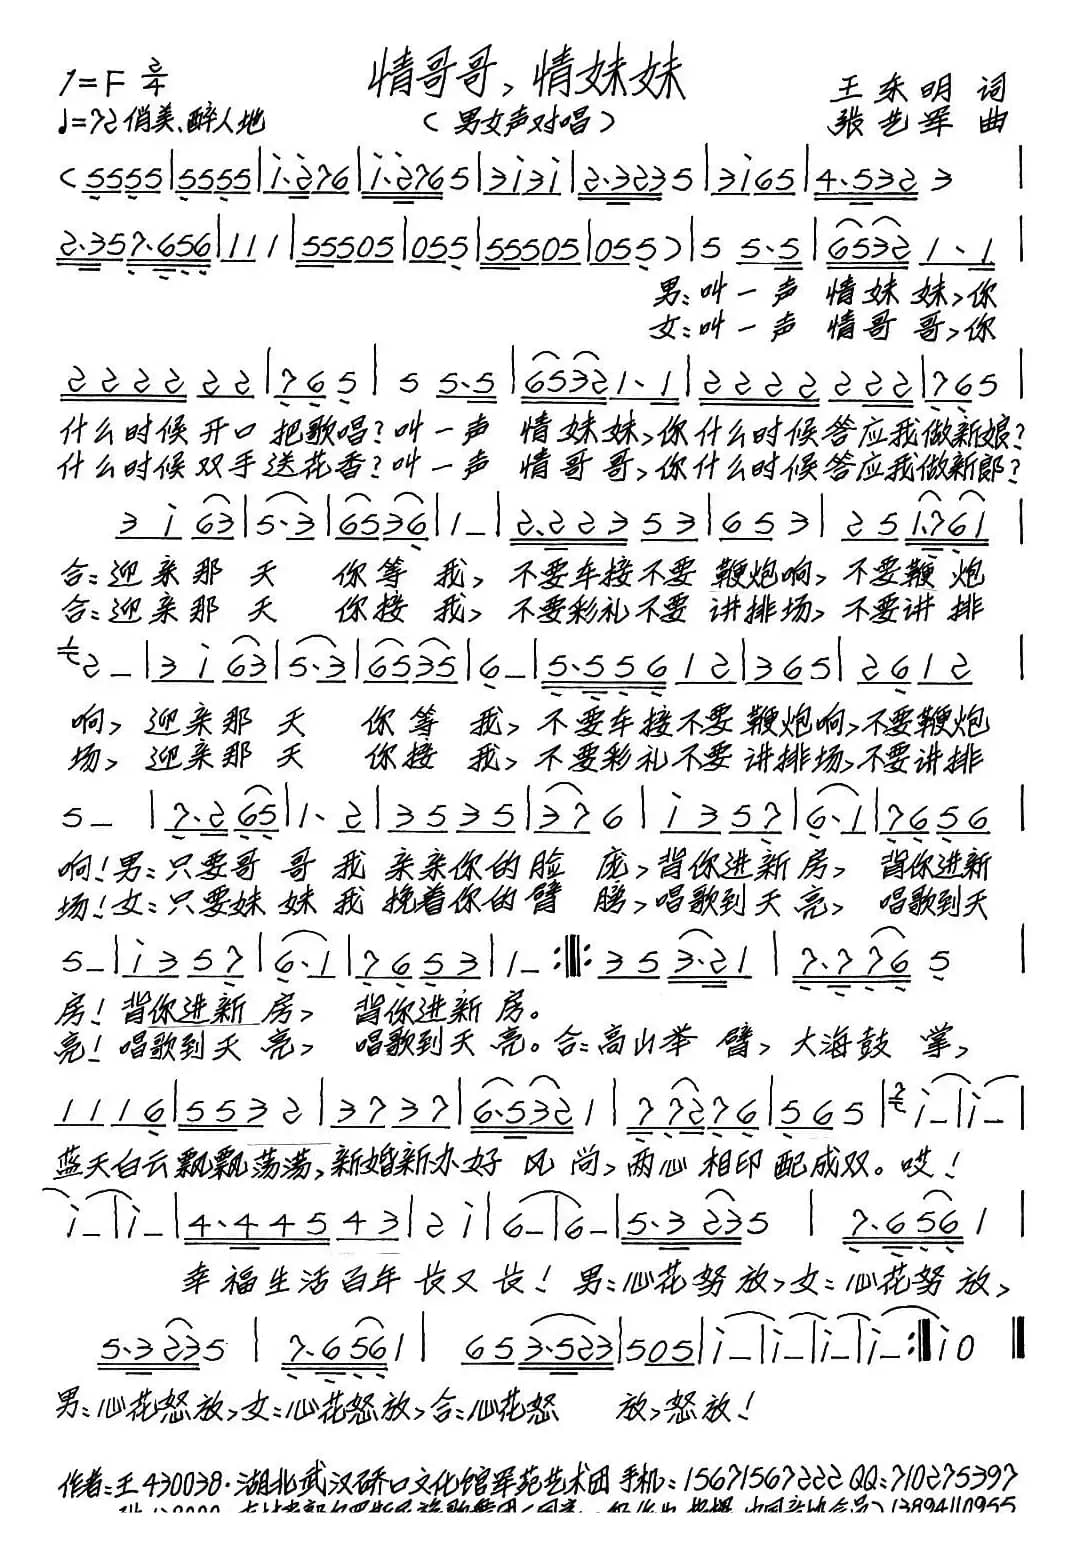 情哥哥，情妹妹
1=F 2/4
王东明 词
♩=72 俏美、醉人地
（男女声对唱）
张艺军 曲
(5555|5555|1·276|1·2765|3131|2·3235|3165|4·532 3|
2·357·656|111|55505|055|55505|055)|5 5·5|6532 1·1|
男：叫一声 情妹妹，你
女：叫一声 情哥哥，你
2222 22|765|5 5·5|65321·1|2222 222|765|
什么时候开口把歌唱？叫一声 情妹妹，你什么时候答应我做新娘？
什么时候双手送花香？叫一声 情哥哥，你什么时候答应我做新郎？
3 1 63|5·3|6536|1–|2·223 53|653|25 1·761|
合：迎亲那天 你等我，不要车接不要鞭炮响，不要鞭炮
合：迎亲那天 你接我，不要彩礼不要讲排场，不要讲排
2–|3 1 63|5·3|6535|6–|5·556 12|365|2612|
响，迎亲那天 你等我，不要车接不要鞭炮响，不要鞭炮
场，迎亲那天 你接我，不要彩礼不要讲排场，不要讲排
5–|7·2 65|1·2|3535|376|1357|6·1|7656|
响！男：只要哥哥我亲亲你的脸庞，背你进新房，背你进新
场！女：只要妹妹我挽着你的臂膀，唱歌到天亮，唱歌到天
5–|1357|6·1|7653|1–:‖:353·21|7·776 5|
房！背你进新房，背你进新房。
亮！唱歌到天亮，唱歌到天亮。合：高山举臂，大海鼓掌，
1116|5532|3737|6·5321|77276|565|1–|1–|
蓝天白云飘飘荡荡，新婚新办好风尚，两心相印配成双。哎！
1–|1–|4·445 43|21|6–|6–|5·3 235|7·6561|
幸福生活百年长又长！男：心花努放，女：心花努放，
5·3 235|7·6561|653·523|505|1–|1–|1–|1–:‖10‖
男：心花怒放，女：心花怒放，合：心花怒 放，怒放！
作者：王 430038·湖北武汉硚口文化馆军苑艺术团 手机：15671567222 QQ：710275397
13894110955